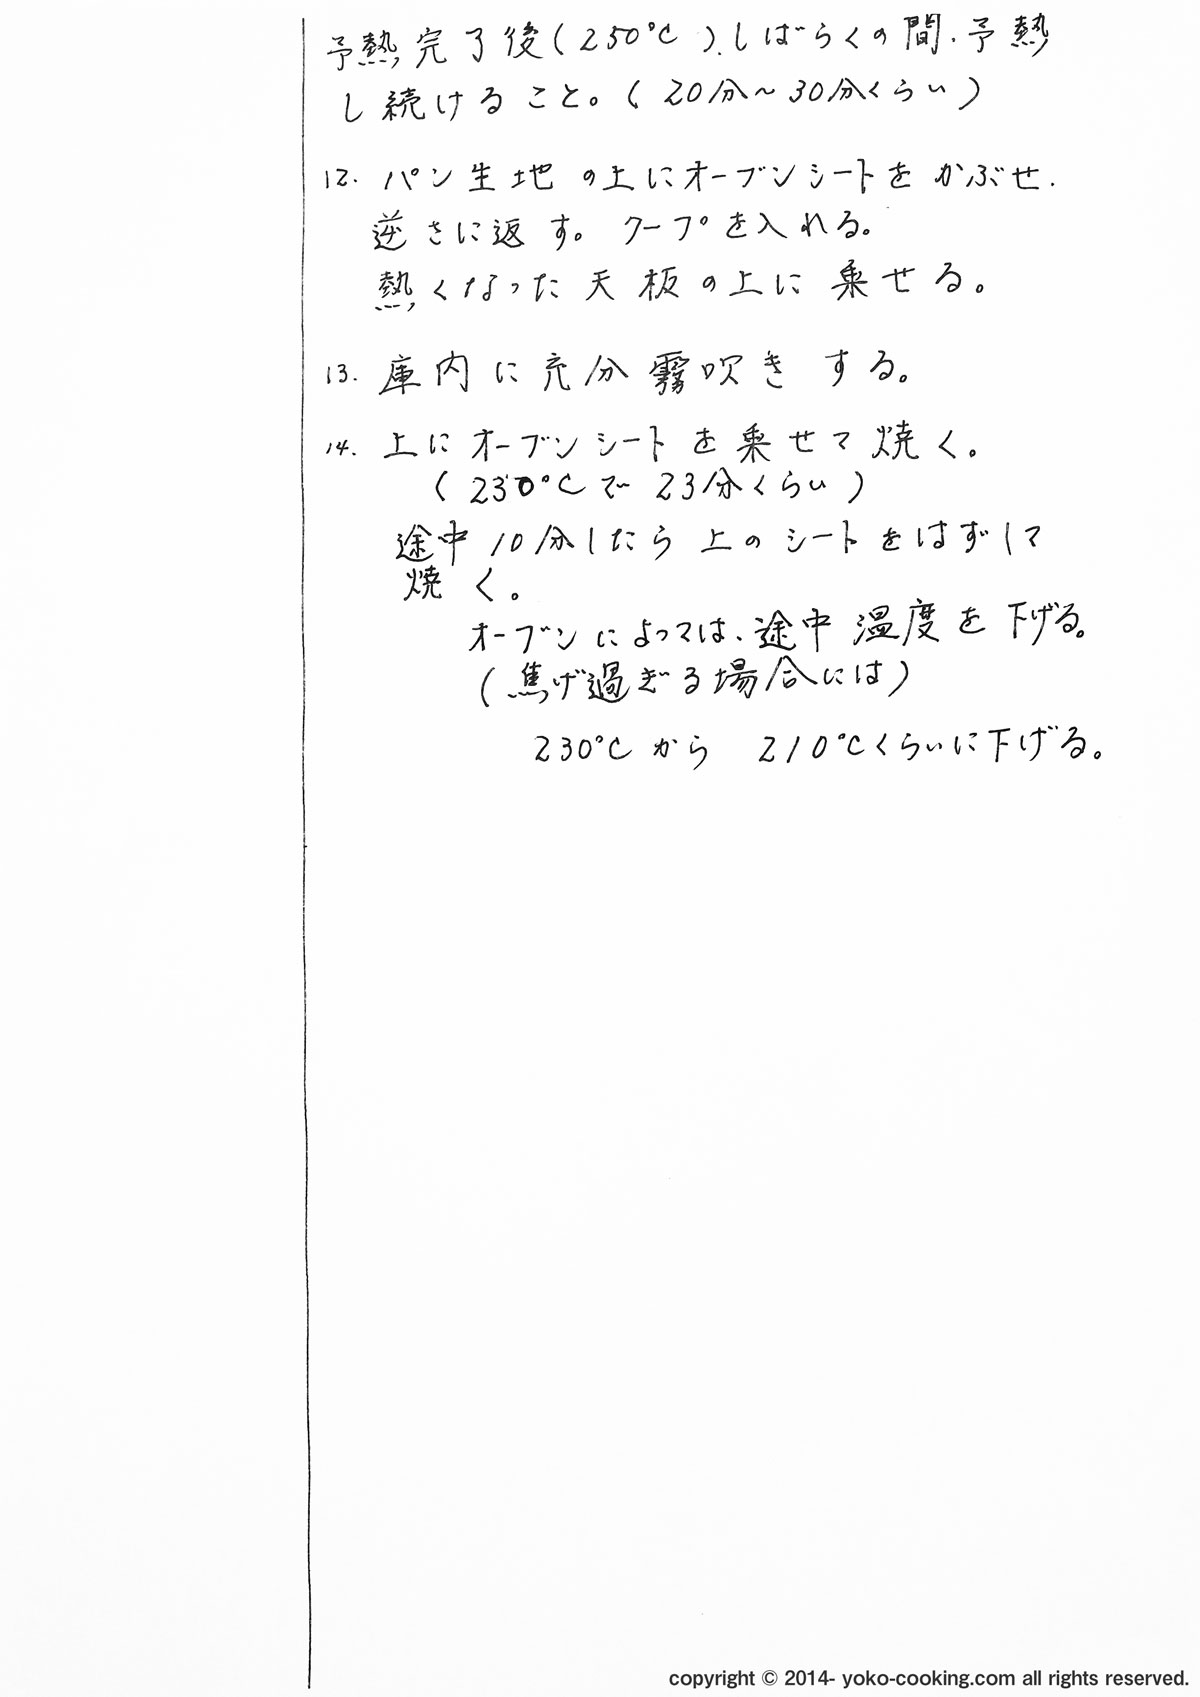 予熱完了後(250℃)、しばらくの間、予熱
し続けること。(20分〜30分くらい)
12. パン生地の上にオーブンシートをかぶせ、
逆さに返す。クープを入れる。
熱くなった天板の上に乗せる。
13. 庫内に充分霧吹きする。
14. 上にオーブンシートを乗せて焼く。
(230℃で23分くらい)
途中10分したら上のシートをはずして
焼く。
オーブンによっては、途中温度を下げる。
(焦げ過ぎる場合には)
230℃から 210℃くらいに下げる。
copyright © 2014- yoko-cooking.com all rights reserved.